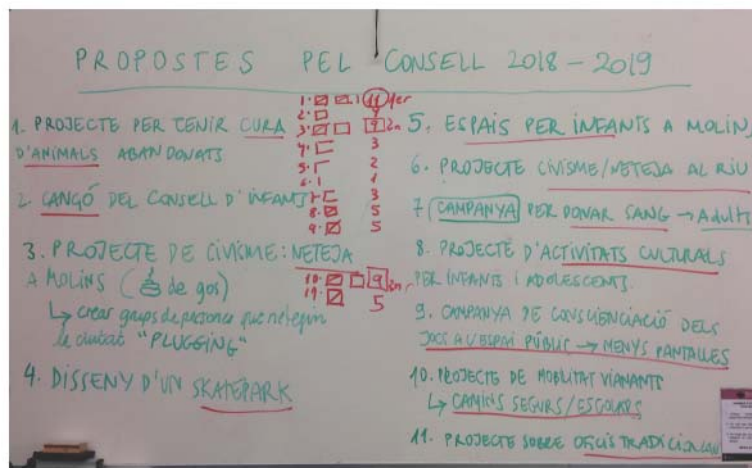 PROPOSTES PEL CONSELL 2018-2019
1. PROJECTE PER TENIR CURA
D'ANIMALS ABANDONATS
2. CANÇÓ DEL CONSELL D'INFANTS
3. PROJECTE DE CIVISME: NETEJA
A MOLINS ( de gos)
↳ crear grups de persones que netegin
la ciutat "PLUGGING"
4. DISSENY D'UN SKATEPARK
1. 11 1er
2. 4
3. 9 2n
4. 3
5. 2
6. 1
7. 3
8. 5
9. 5
10. 9 2n
11. 5
5. ESPAIS PER INFANTS A MOLINS
6. PROJECTE CIVISME/NETEJA AL RIU
7 CAMPANYA PER DONAR SANG → Adults
8. PROJECTE D'ACTIVITATS CULTURALS
PER INFANTS I ADOLESCENTS.
9. CAMPANYA DE CONSCIENCIACIÓ DELS
JOCS A L'ESPAI PÚBLIC → MENYS PANTALLES
10. PROJECTE DE MOBILITAT VIANANTS
↳ CAMINS SEGURS/ESCOLARS
11. PROJECTE SOBRE OFICIS TRADICIONALS